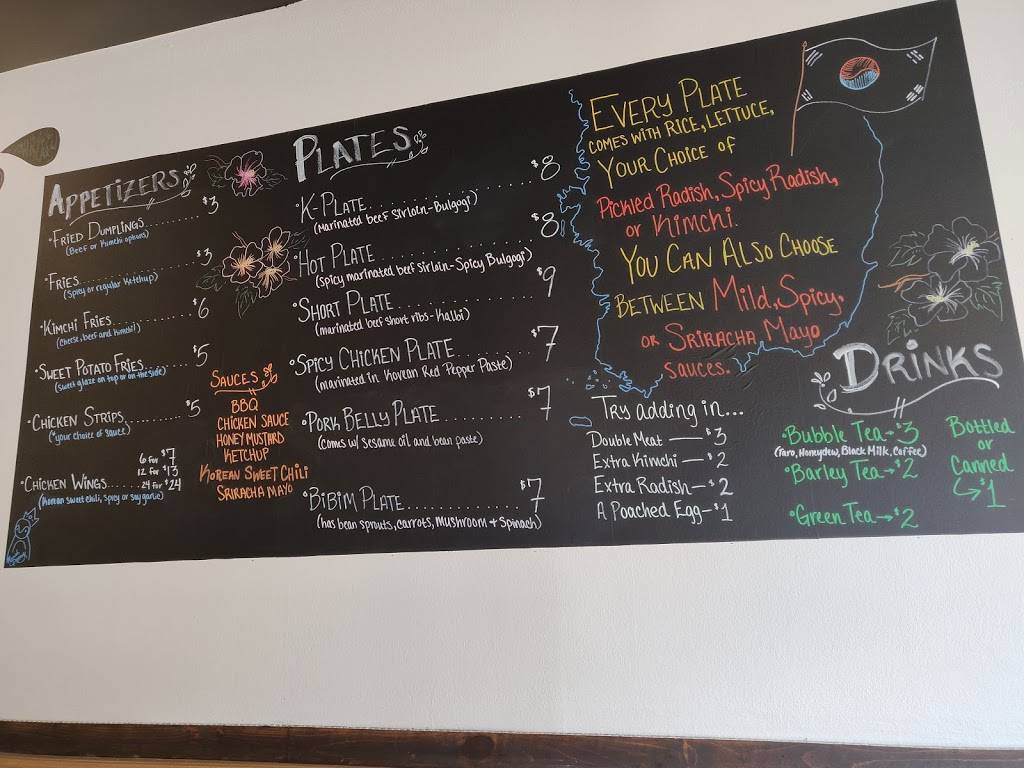 APPETIZERS
•FRIED DUMPLINGS........ $3
(Beef or Kimchi options)
•FRIES................ $3
(Spicy or regular Ketchup)
•KIMCHI FRIES........ $6
(Cheese, beef and kimchi)
•SWEET POTATO FRIES....... $5
(sweet glaze on top or on the side)
•CHICKEN STRIPS......... $5
(*your choice of sauce)
6 for $7
12 for $13
•CHICKEN WINGS..... 24 for $24
(Korean sweet chili, spicy or soy garlic)
SAUCES
BBQ
CHICKEN SAUCE
HONEY MUSTARD
KETCHUP
KOREAN SWEET CHILI
SRIRACHA MAYO
PLATES
•K-PLATE............ $8
(Marinated beef sirloin-Bulgogi)
•HOT PLATE............ $8
(Spicy marinated beef sirloin-Spicy Bulgogi)
•SHORT PLATE............ $9
(marinated beef short ribs-Kalbi)
•SPICY CHICKEN PLATE......... $7
(marinated in Korean Red Pepper Paste)
•PORK BELLY PLATE......... $7
(coms w/ sesame oil and bean paste)
•BIBIM PLATE............ $7
(has bean sprouts, carrots, Mushroom + Spinach)
EVERY PLATE
COMES WITH RICE, LETTUCE,
YOUR CHOICE OF
Pickled Radish, Spicy Radish,
or Kimchi.
YOU CAN ALSO CHOOSE
BETWEEN Mild, Spicy,
OR SRIRACHA MAYO
SAUCES.
Try adding in...
Double Meat — $3
Extra Kimchi — $2
Extra Radish — $2
A Poached Egg — $1
DRINKS
•Bubble Tea→$3
(Taro, Honeydew, Black Milk, Coffee)
•Barley Tea→$2
•Green Tea→$2
Bottled
or
Canned
↳$1